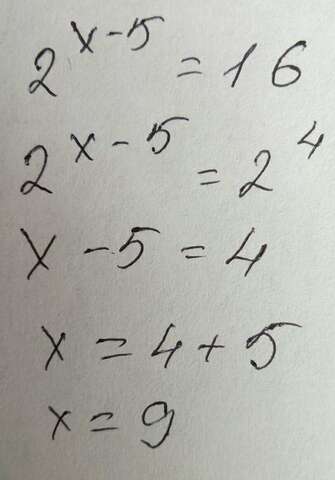 2^{x-5} = 16
2^{x-5} = 2^4
x - 5 = 4
x = 4 + 5
x = 9